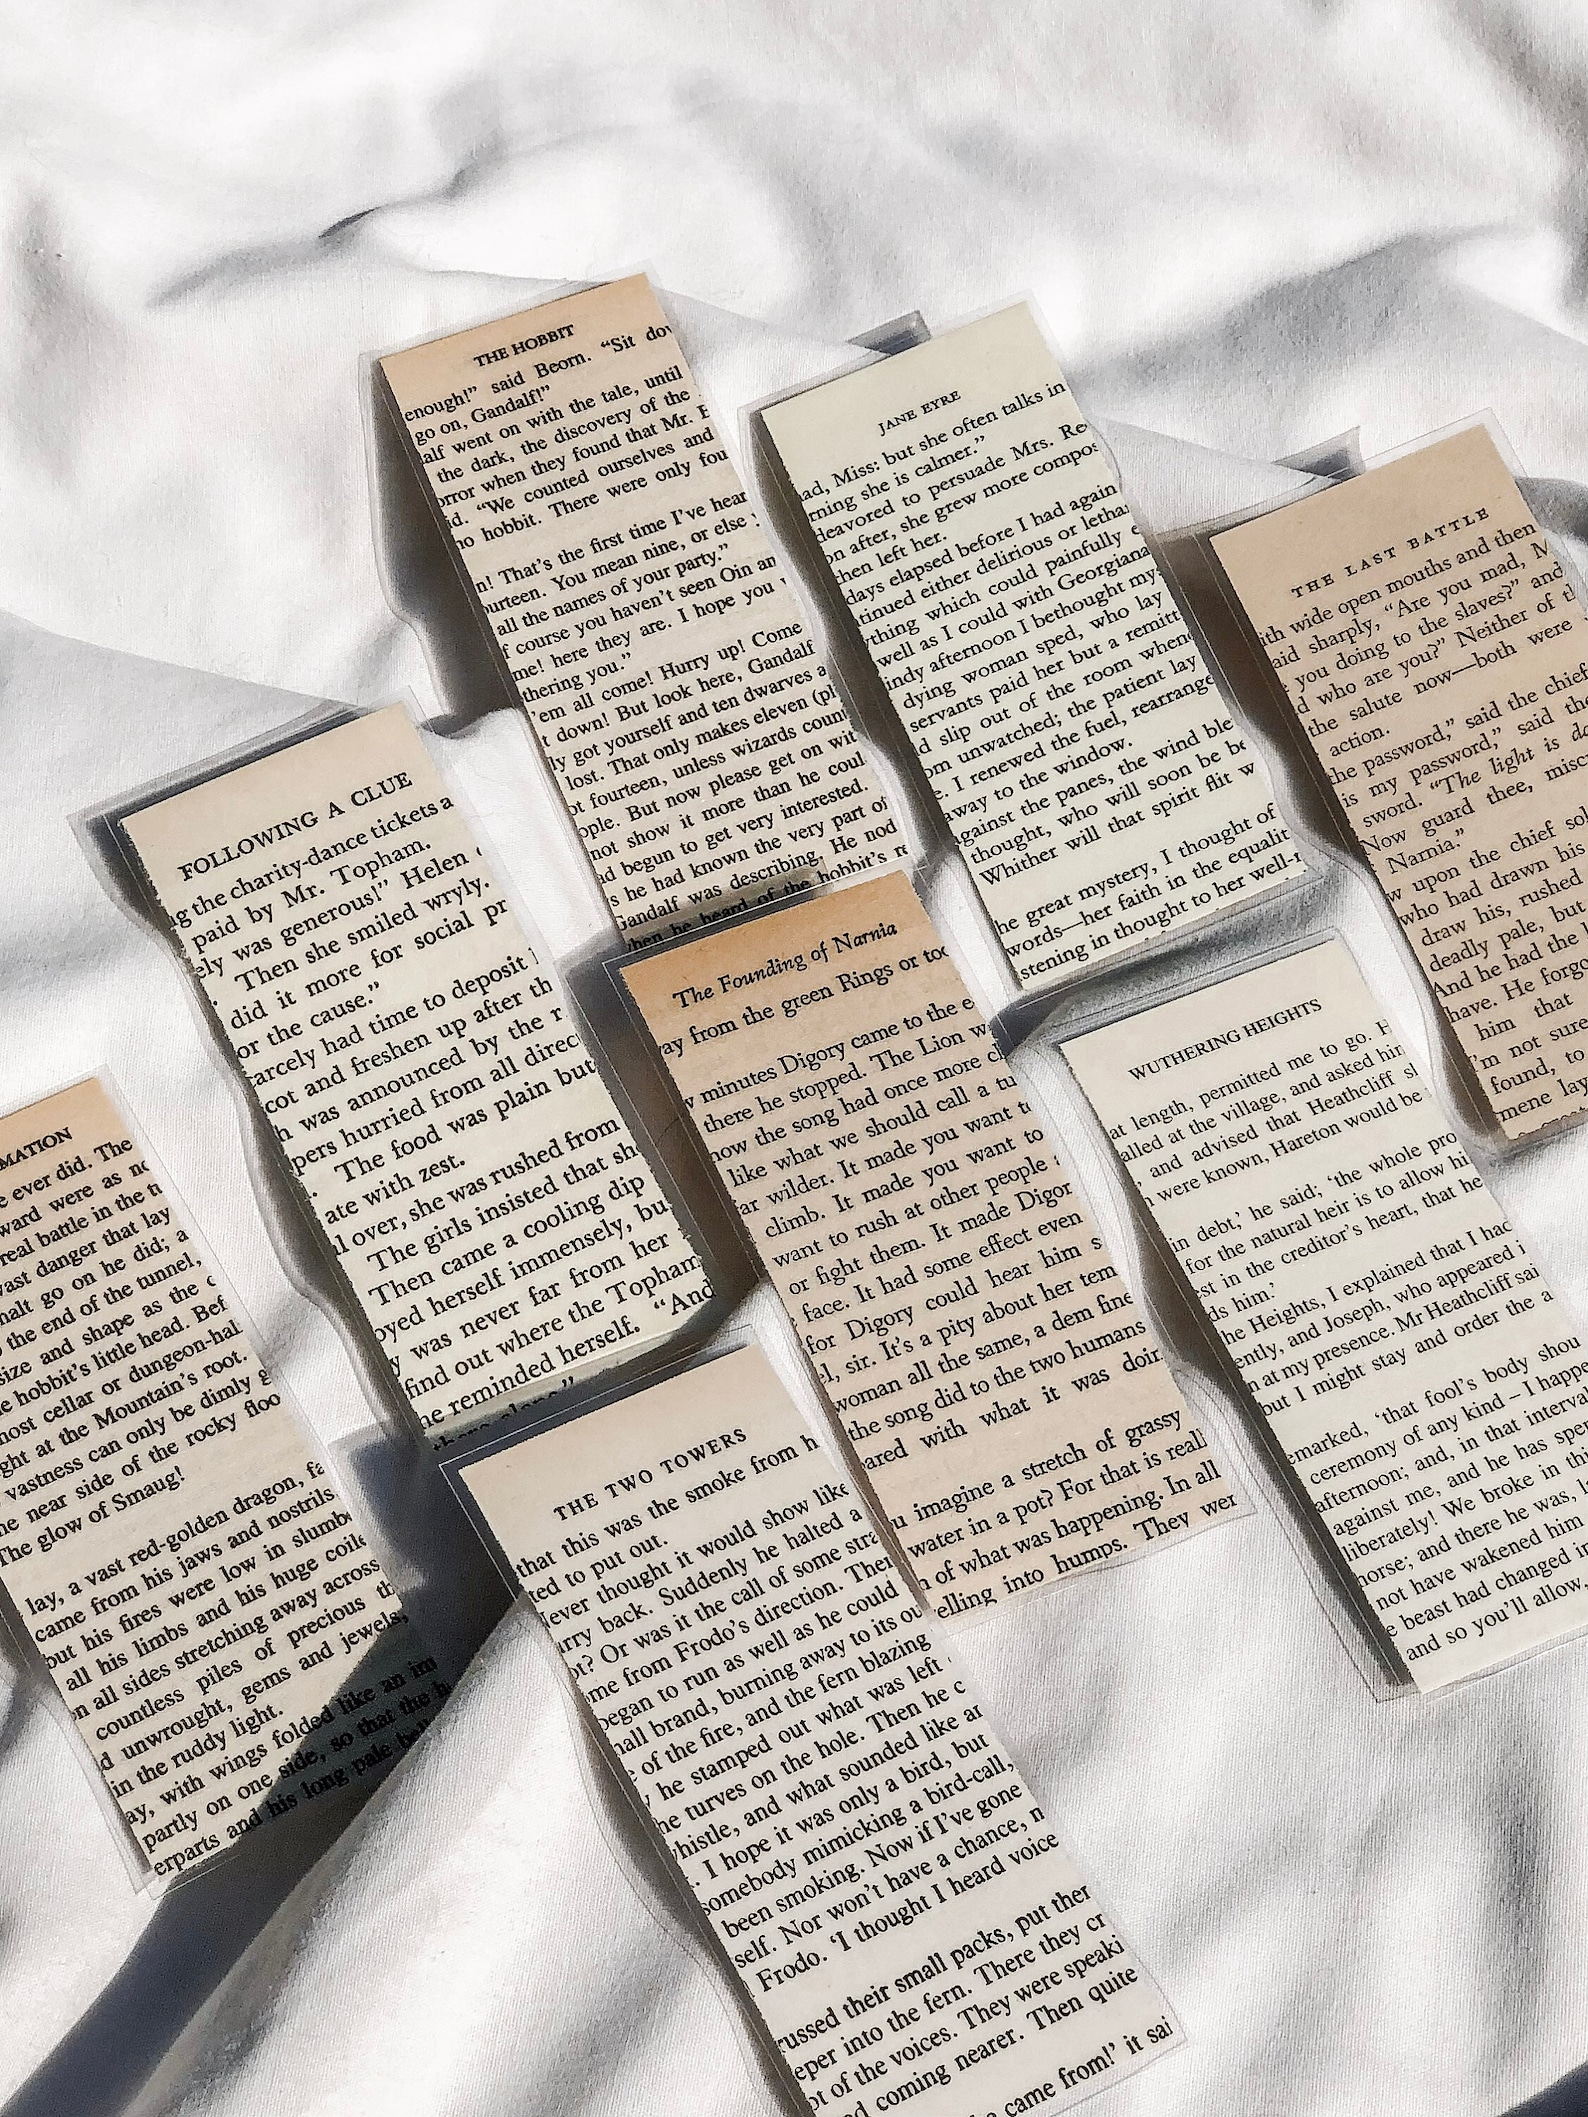 THE HOBBIT
enough!" said Beorn. "Sit
go on, Gandalf!"
went on with the tale, until
the dark, the discovery of the
when they found that Mr.
"We counted ourselves and
hobbit. There were only
That's the first time I've
You mean nine, or else
all the names of your party."
course you haven't seen Oin
here they are. I hope you
you."
'em all come! Hurry up! Come
down! But look here, Gandalf
got yourself and ten dwarves
lost. That only makes eleven
fourteen, unless wizards
But now please get on
not show it more than he
begun to get very interested.
he had known the very part of
Gandalf was describing. He
when he heard of the hobbit's
JANE EYRE
Miss: but she often talks in
she is calmer."
to persuade Mrs.
after, she grew more
left her.
days elapsed before I had again
either delirious or
which could painfully
well as I could with Georgiana
afternoon I bethought my-
dying woman sped, who lay
servants paid her but a
slip out of the room
unwatched; the patient lay
I renewed the fuel,
away to the window.
against the panes, the wind
thought, who will soon be
Whither will that spirit flit
great mystery, I thought of
words—her faith in the
in thought to her well-
THE LAST BATTLE
wide open mouths and then
sharply, "Are you mad,
you doing to the slaves?" and
who are you?" Neither of
the salute now—both were
action.
the password," said the chief
is my password," said
sword. "The light is
Now guard thee,
Narnia."
upon the chief
who had drawn his
draw his, rushed
deadly pale, but
And he had the
have. He forgo
him that
I'm not sure
found, to
lay
FOLLOWING A CLUE
the charity-dance tickets
paid by Mr. Topham.
was generous!" Helen
Then she smiled wryly.
did it more for social
or the cause."
had time to deposit
and freshen up after
was announced by the
hurried from all
The food was plain but
ate with zest.
over, she was rushed from
The girls insisted that
Then came a cooling dip
herself immensely,
was never far from her
find out where the
reminded herself. "And
The Founding of Narnia
from the green Rings or
minutes Digory came to the
there he stopped. The Lion
now the song had once more
like what we should call a
wilder. It made you want
climb. It made you want to
want to rush at other people
or fight them. It made
face. It had some effect even
for Digory could hear him
sir. It's a pity about her
woman all the same, a dem fine
the song did to the two humans
with what it was
imagine a stretch of grassy
water in a pot? For that is
of what was happening. In all
into humps. They
WUTHERING HEIGHTS
at length, permitted me to go.
at the village, and asked
and advised that Heathcliff
were known, Hareton would be
in debt,' he said; 'the whole
for the natural heir is to allow
in the creditor's heart, that he
Heights, I explained that I
and Joseph, who appeared
at my presence. Mr Heathcliff
but I might stay and order the
'that fool's body
ceremony of any kind – I
afternoon; and, in that
against me, and he has
We broke in
and there he was,
not have wakened him
beast had changed
and so you'll allow,
ever did. The
were as
real battle in the
danger that lay
go on he did;
the end of the tunnel,
size and shape as the
hobbit's little head.
cellar or
at the Mountain's root.
vastness can only be dimly
near side of the rocky
The glow of Smaug!
lay, a vast red-golden dragon,
came from his jaws and nostrils
but his fires were low in
all his limbs and his huge
all sides stretching away across
countless piles of precious
unwrought, gems and jewels,
in the ruddy light.
with wings folded like an
partly on one side, so that the
and his long pale
THE TWO TOWERS
that this was the smoke from
to put out.
thought it would show like
back. Suddenly he halted
Or was it the call of some
from Frodo's direction.
began to run as well as he could
brand, burning away to its
of the fire, and the fern blazing
he stamped out what was left
turves on the hole. Then he
whistle, and what sounded like
I hope it was only a bird, but
somebody mimicking a bird-call,
been smoking. Now if I've gone
self. Nor won't have a chance,
Frodo. 'I thought I heard
their small packs, put
into the fern. There they
of the voices. They were
coming nearer. Then quite
came from!' it